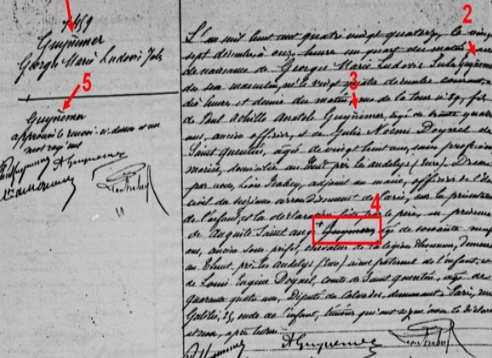 1459
Guynemer
Georges Marie Ludovic Jules
5
Guynemer
approuvé le renvoi ci-dessus et un
mot rayé nul
AGuynemer
2
L'an mil huit cent quatre vingt quatorze, le vingt
sept décembre à onze heures un quart du matin, acte
de naissance de Georges Marie Ludovic Jules Guynemer
du sexe masculin, né le vingt quatre décembre courant à
dix heures et demie du matin, rue de la Tour
3
de Paul Achille Anatole Guynemer, âgé de trente quatre
ans, ancien officier, et de Julie Noémi Doynel de
Saint Quentin, âgée de vingt huit ans, sans profession
mariés, domiciliés au Thuit près les Andelys (Eure). Dressé
par nous, adjoint au maire, officier de l'état
civil du seizième arrondissement de Paris, sur la présentation
de l'enfant et la déclaration faite par le père, en présence
4
de Auguste Saint Ange Guynemer, âgé de soixante neuf
ans, ancien sous préfet, chevalier de la légion d'honneur, demeurant
au Thuit, près les Andelys (Eure) aïeul paternel de l'enfant, et
de Louis Eugène Doynel, comte de Saint Quentin, âgé de
quarante quatre ans, Député du Calvados, demeurant à Paris, rue
Galilée, oncle de l'enfant, témoins qui ont signé avec le déclarant
et nous, après lecture.
AGuynemer